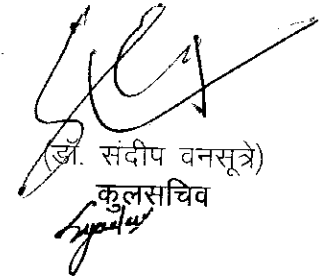 (डॉ. संदीप वनसूत्रे)
कुलसचिव